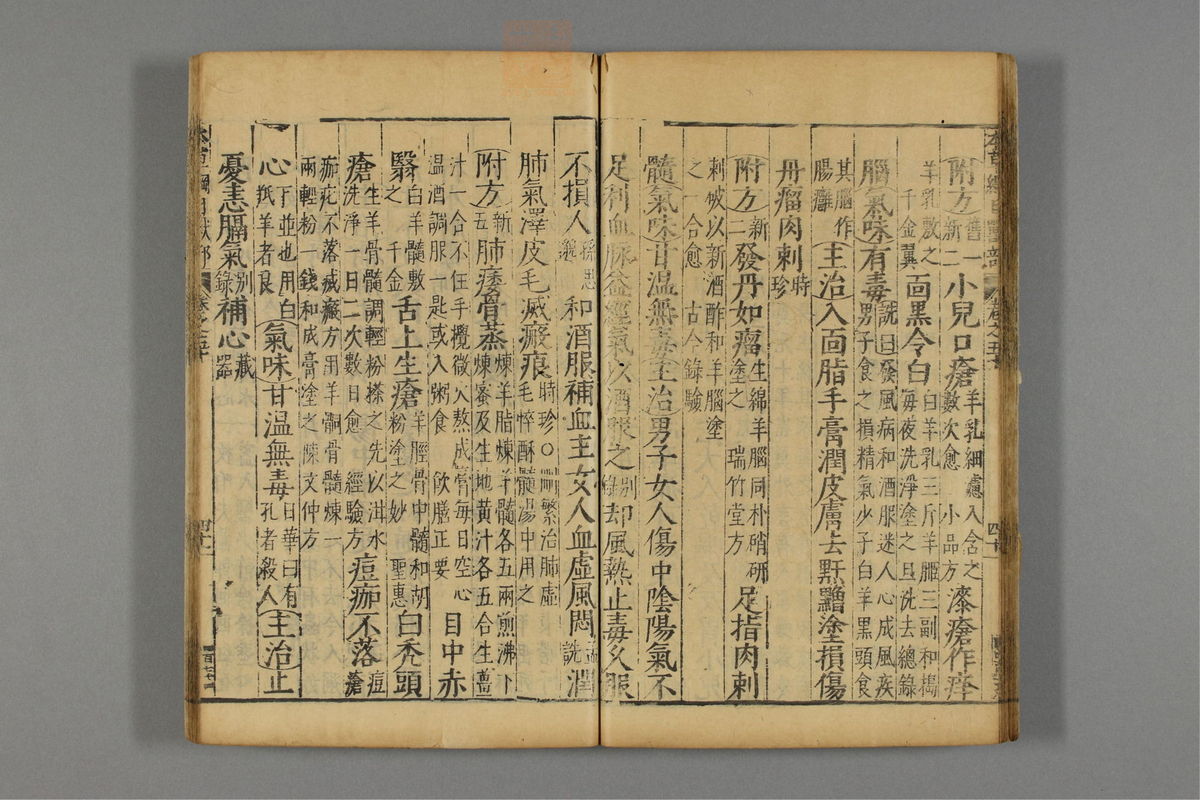 附方舊一新二小兒口瘡羊乳細濾入含之數次愈小品方漆瘡作痒
羊乳敷之千金翼面黑令白白羊乳三斤羊胵三副和擣每夜洗淨塗之旦洗去總錄
腦氣味有毒詵曰發風病和酒服迷人心成風疾男子食之損精氣少子白羊黑頭食
其腦作腸癰主治入面脂手膏潤皮膚去䵟黯塗損傷
丹瘤肉刺時珍
附方新二發丹如瘤生綿羊腦同朴硝研塗之瑞竹堂方足指肉刺
刺破以新酒酢和羊腦塗之一合愈古今錄驗
髓氣味甘溫無毒主治男子女人傷中陰陽氣不
足利血脉益經氣以酒服之別錄却風熱止毒久服
不損人孫思邈和酒服補血主女人血虛風悶孟詵潤
肺氣澤皮毛滅瘢痕時珍○刪繁治肺虛毛悴酥髓湯中用之
附方新五肺痿骨蒸煉羊脂煉羊髓各五兩煎沸下煉蜜及生地黃汁各五合生薑
汁一合不住手攪微火熬成膏每日空心溫酒調服一匙或入粥食飲膳正要目中赤
翳白羊髓敷之千金舌上生瘡羊脛骨中髓和胡粉塗之妙聖惠白禿頭
瘡生羊骨髓調輕粉搽之先以泔水洗淨一日二次數日愈經驗方痘痂不落痘瘡
痂疕不落滅瘢方用羊䯊骨髓煉一兩輕粉一錢和成膏塗之陳文仲方
心下並也用白羝羊者良氣味甘溫無毒日華曰有孔者殺人主治止
憂恚膈氣別錄補心藏器